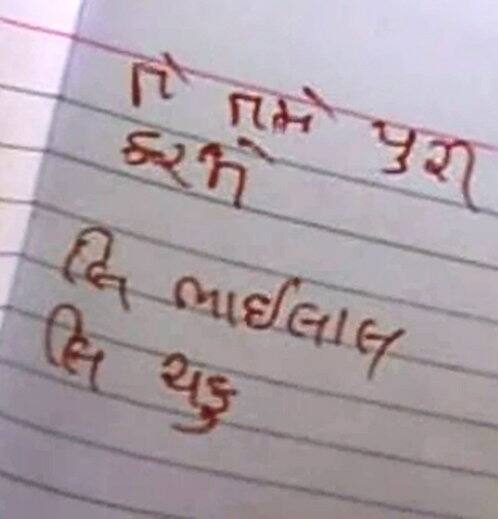 તે તમે પુરા
કરજે
લિ ભાઈલાલ
લિ ચકુ